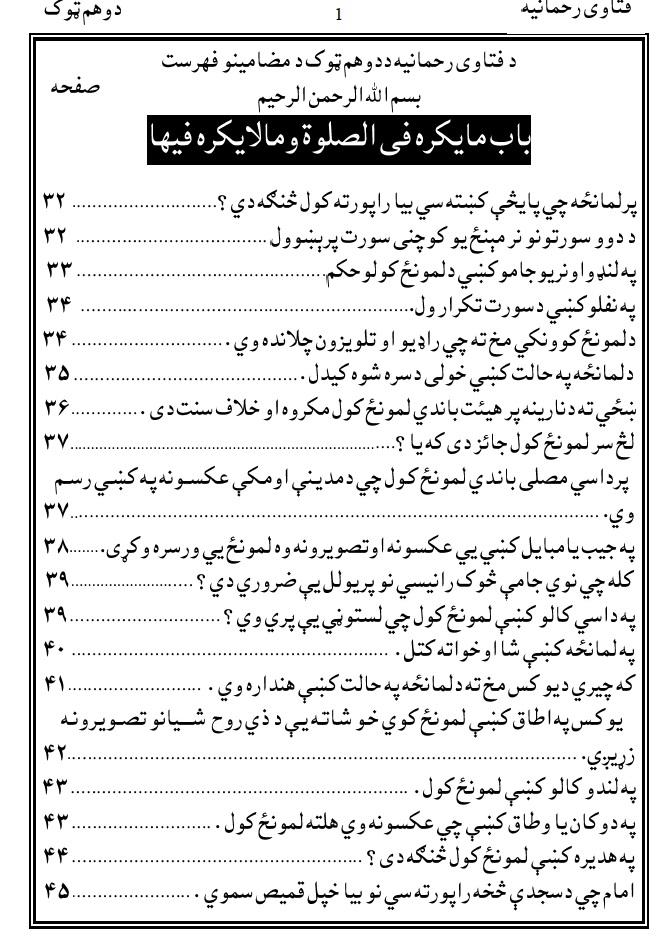 فتاوی رحمانیه 1 دوهم ټوک
د فتاوی رحمانیه ددوهم ټوک د مضامینو فهرست
بسم الله الرحمن الرحیم
صفحه
باب مایکره فی الصلوة ومالایکره فیها
پرلمانځه چي پایڅې کښته سي بیا راپورته کول څنګه دي ؟............................ ۳۲
د دوو سورتونو نر مېنځ یو کوچنی سورت پرېښوول..................................... ۳۲
په لنډو او نریو جامو کښي دلمونځ کولو حکم................................................ ۳۳
په نفلو کښي د سورت تکرار ول................................................................ ۳۴
دلمونځ کوونکي مخ ته چي راډیو او تلویزون چلانده وي .............................. ۳۴
دلمانځه په حالت کښي خولی دسره شوه کیدل ........................................... ۳۵
ښځي ته دنارینه پر هیئت باندي لمونځ کول مکروه او خلاف سنت دی .............. ۳۶
لڅ سر لمونځ کول جائز دی که یا ؟................................................................ ۳۷
پرداسي مصلی باندي لمونځ کول چي دمدیني او مکې عکسونه په کښي رسم
وي. .................................................................................................... ۳۷
په جیب یا مبایل کښي یې عکسونه او تصویرونه وه لمونځ یې ورسره وکړی........ ۳۸
کله چي نوي جامې څوک رانیسي نو پریولل یې ضروري دي ؟............................ ۳۹
په داسي کالو کښي لمونځ کول چي لستوڼي یې پري وي ؟............................ ۳۹
په لمانځه کښي شا او خواته کتل . ...................................................... ۴۰
که چیري دیو کس مخ ته دلمانځه په حالت کښي هنداره وي . .......................... ۴۱
یو کس په اطاق کښي لمونځ کوي خو شاته یې د ذي روح شــیانو تصـویرونـه
زړیږي. ................................................................................................ ۴۲
په لندو کالو کښي لمونځ کول . ........................................................ ۴۳
په دوکان یا وطاق کښي چي عکسونه وي هلته لمونځ کول . ............................ ۴۳
په هدیره کښي لمونځ کول څنګه دی ؟ .................................................. ۴۴
امام چي د سجدې څخه راپورته سي نو بیا خپل قمیص سموي . ...................... ۴۵